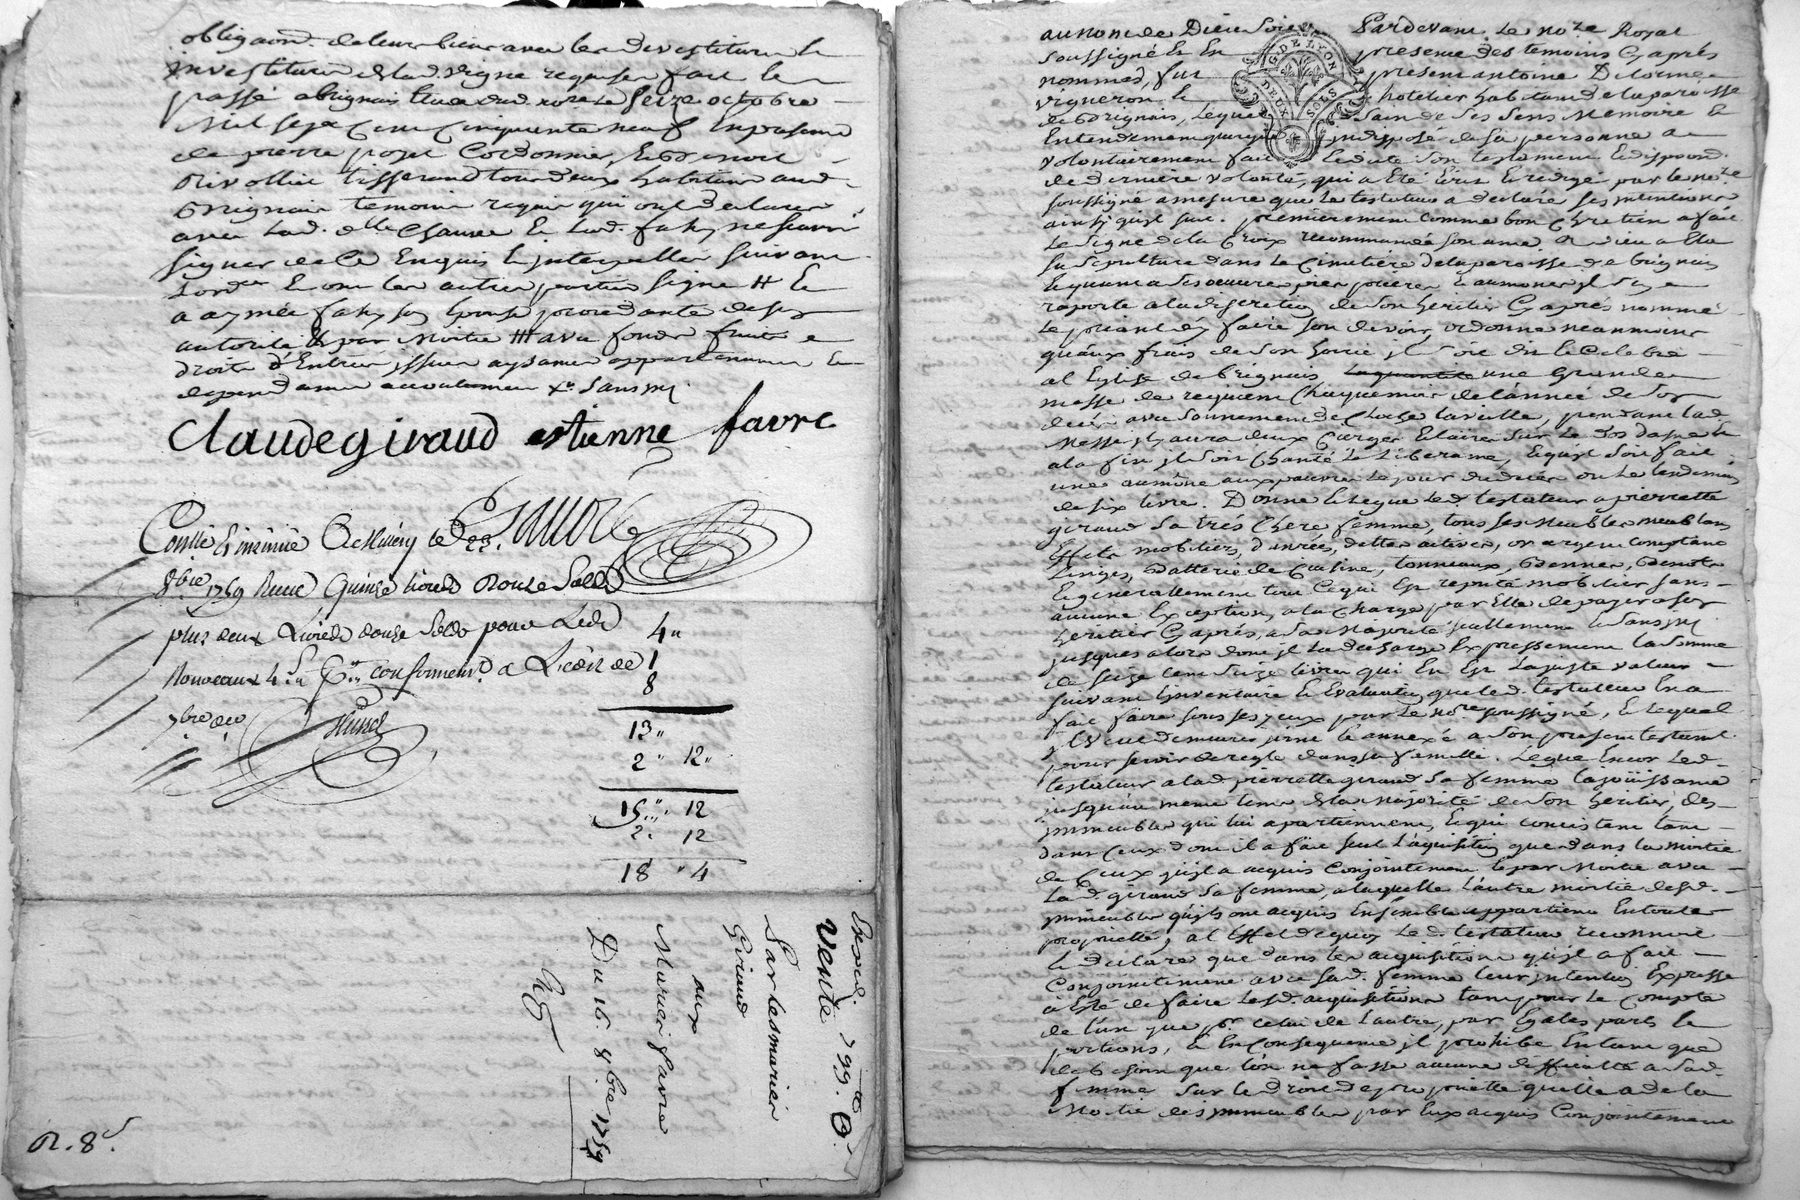 obligaon.d de leurs biens avec les devestiture &
investiture de lad. vigne requises fait &
passé a brignais le seize octobre
mil sept cent cinquante neuf en presence
de pierre cordonnier, & benoit
tisserand tous deux habitans aud.
brignais temoins requis qui ont declaré
avec lad. dlle & lud. fahy ne scavoir
signer de ce enquis & interpellés suivant
L'ordce & ont les autres parties signé # &
a aymée fahy son epouse procedante de son
autorité & par moitié ### avec fonds fruits
droits d'entrées issues aysances appartenances &
dependances accoutumées sans
Claude giraud estienne favre
Conllé & insinué a le 23.
8bre 1759 Receu Quinze Livres Douze Solds
plus deux Livres douze Solds pour Les
Nouveaux 4 s. p. conformemt. a L'edit de
7bre dr
4 "
1
8
13 "
2 " 12 "
15 " 12
2 " 12
18 " 4
Vente
Par les mariés
Giraud
aux
Mariés favre
Du 16. 8bre 1759
R. 8 s.
au nom de Dieu soit Pardevant Le nore Royal
soussigné & en presence des temoins cy aprés
nommés, fut present antoine Delorme
vigneron & hotelier habitant de la paroisse
de Brignais, lequel sain de ses sens memoire &
entendement quoyque indisposé de sa personne a
volontairement fait & dicté son testament & dispoond.
de derniere volonté, qui a eté écrit & redigé par le nore
soussigné a mesure que le testateur a declaré ses intentions
ainsy qu'il suit. premierement comme bon chretien a fait
le signe de la croix recommandé son ame a dieu a elu
sa sepulture dans le cimetiére de la paroisse de brignais
& quant a ses oeuvres pies prieres & aumones il s'en
raporte a la discretion de son heritier cy aprés nommé
le priant d'y faire son devoir, ordonne neanmoins
qu'aux frais de son hoirie il soit dit & celebré
al Eglise de brignais une Grande
messe de requiem chaque mois de l'année de son
decés avec sonnement de cloche la veille, pendant lad.
messe il y aura deux cierges éclairés sur le
a la fin il soit chanté le libera me, & qu'il soit fait
une aumône aux pauvres le jour du decés ou le lendemain
de six livres. Donne & legue led. testateur a pierrette
giraud sa trés chere femme, tous ses meubles meublans
effets mobiliers, denrées, dettes actives, or argent comptant
Linges, Batterie de Cuisine, tonneaux, bennes, benots
& generallement tout ce qui est reputé mobilier sans
aucune exception, a la charge par elle de payer a son
heritier cy aprés, a sa majorité seullement & sans
jusques alors dont il la decharge expressement la somme
de seize cens seize livres qui en est la juste valeur
suivant l'inventaire & evaluation que led. testateur en a
fait faire sous ses yeux par le nore soussigné, & lequel
il veut demeurer joint & annexé a son present testamt.
pour servir de regle dans sa famille. Legue encor led.
testateur a lad. pierrette giraud sa femme la jouissance
jusqu'au meme tems de la majorité de son heritier, des
immeubles qui lui apartiennent, & qui consistent tant
dans ceux dont il a fait seul l'aquisition que dans la moitié
de ceux qu'il a acquis conjointement & par moitié avec
lad. giraud sa femme, a laquelle l'autre moitié desd.
immeubles qu'ils ont acquis ensemble appartient en toute
proprieté, a l'effet de quoy led. testateur reconnoit
& declare que dans les acquisitions qu'il a fait
conjointement avec sad. femme leur intention expresse
a eté de faire lesd. acquisitions tant pour le compte
de l'un que pr. celui de l'autre, par egales parts &
portions, & en consequence il prohibe en tant que
de besoin que l'on ne fasse aucune difficulté a sad.
femme sur le droit de proprieté qu'elle a de la
moitié des immeubles par eux acquis conjointement